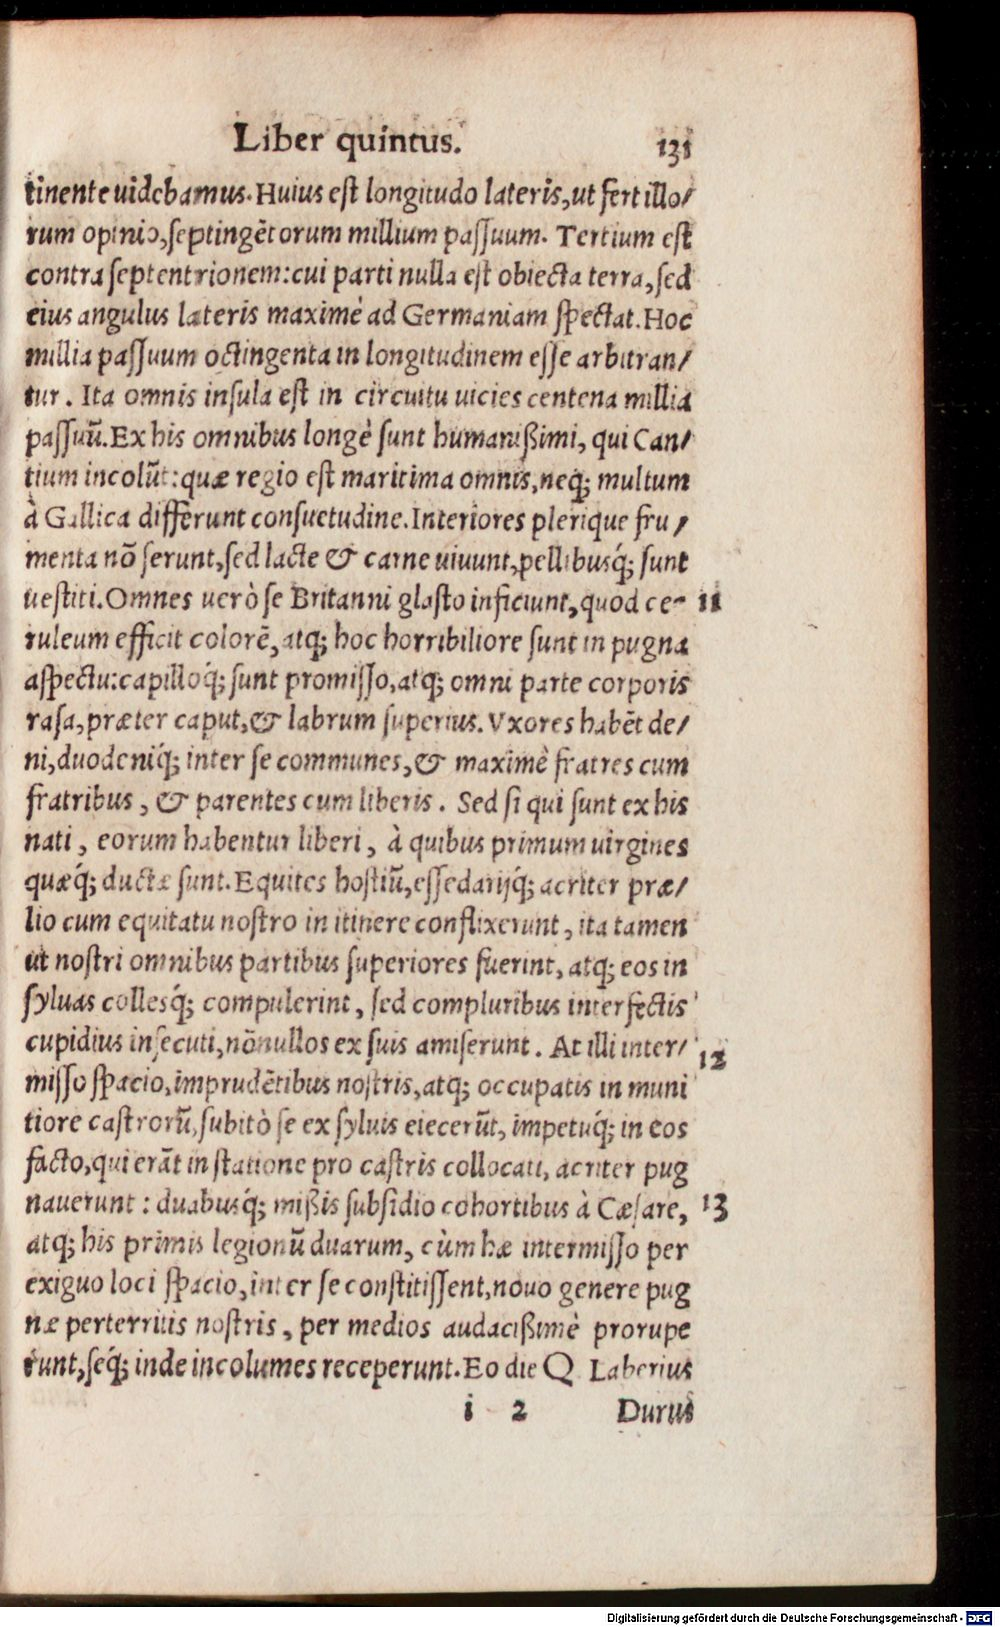 Liber quintus. 131
tinente uidebamus. Huius est longitudo lateris, ut fert illo/
rum opinio, septingẽtorum millium passuum. Tertium est
contra septentrionem: cui parti nulla est obiecta terra, sed
eius angulus lateris maximè ad Germaniam spectat. Hoc
millia passuum octingenta in longitudinem esse arbitran/
tur. Ita omnis insula est in circuitu uicies centena millia
passuũ. Ex his omnibus longè sunt humanißimi, qui Can/
tium incolũt: quæ regio est maritima omnis, neq; multum
à Gallica differunt consuetudine. Interiores plerique fru/
menta nõ serunt, sed lacte & carne uiuunt, pellibusq́; sunt
uestiti. Omnes uerò se Britanni glasto inficiunt, quod ce- 11
ruleum efficit colorẽ, atq; hoc horribiliore sunt in pugna
aspectu: capilloq́; sunt promisso, atq; omni parte corporis
rasa, præter caput, & labrum superius. Vxores habẽt de/
ni, duodeniq́; inter se communes, & maximè fratres cum
fratribus, & parentes cum liberis. Sed si qui sunt ex his
nati, eorum habentur liberi, à quibus primum uirgines
quæq́; ductæ sunt. Equites hostiũ, essedarijq́; acriter præ/
lio cum equitatu nostro in itinere conflixerunt, ita tamen
ut nostri omnibus partibus superiores fuerint, atq; eos in
syluas collesq́; compulerint, sed compluribus interfectis
cupidius insecuti, nõnullos ex suis amiserunt. At illi inter/ 12
misso spacio, imprudẽtibus nostris, atq; occupatis in muni
tiore castrorũ, subitò se ex syluis eiecerũt, impetuq́; in eos
facto, qui erãt in statione pro castris collocati, acriter pug
nauerunt: duabusq́; mißis subsidio cohortibus à Cæsare, 13
atq; his primis legionũ duarum, cùm hæ intermisso per
exiguo loci spacio, inter se constitissent, nouo genere pug
næ perterritis nostris, per medios audacißimè prorupe
runt, seq́; inde incolumes receperunt. Eo die Q Laberius
i 2 Durus
Digitalisierung gefördert durch die Deutsche Forschungsgemeinschaft - DFG